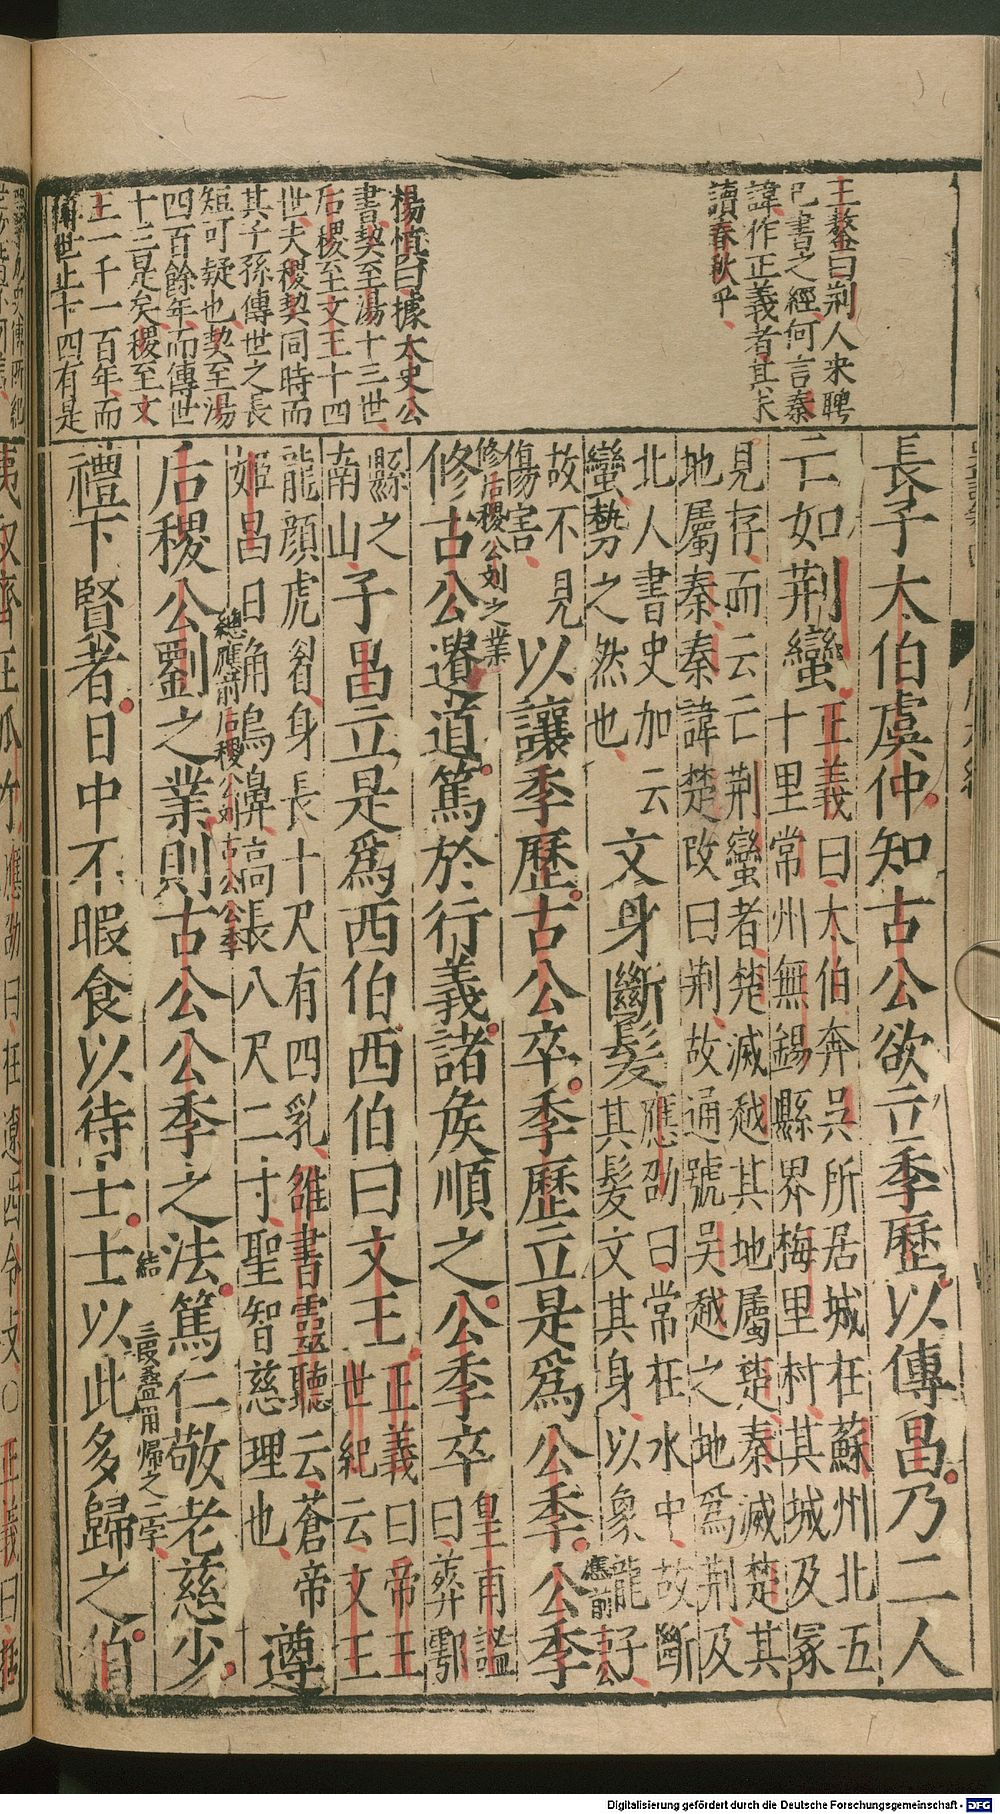 王鏊曰荆人来聘
已書之經何言秦
諱作正義者其未
讀春秋乎
楊慎曰據太史公
書契至湯十三世
后稷至文王十四
世夫稷契同時而
其子孫傳世之長
短可疑也契至湯
四百餘年而傳世
十三是矣稷至文
王一千一百年而
傳世止十四有是
長子太伯虞仲知古公欲立季歷以傳昌乃二人
亡如荆蠻
正義曰太伯奔吳所居城在蘇州北五
十里常州無錫縣界梅里村其城及冢
見存而云亡荆蠻者楚滅越其地屬楚秦滅楚其
地屬秦秦諱楚改曰荆故通號吳越之地爲荆及
北人書史加云
蠻勢之然也
文身斷髮
應劭曰常在水中故斷
其髮文其身以象龍子
故不見
傷害
以讓季歷古公卒季歷立是爲公季公季
應前
公
修后稷公刘之業
修古公遺道篤於行義諸矦順之公季卒
皇甫謐
曰葬鄠
縣之
南山
子昌立是爲西伯西伯曰文王
正義曰帝王
世紀云文王
龍顔虎眉身長十尺有四乳雒書靈聽云蒼帝
姬昌日角鳥鼻高長八尺二寸聖智慈理也
遵
總應前后稷公刘古公公季
后稷公劉之業則古公公季之法篤仁敬老慈少
結
三段盡用歸之二字
禮下賢者日中不暇食以待士士以此多歸之伯
夷叔齊在孤竹
應劭曰在遼西令支〇正義曰括
Digitalisierung gefördert durch die Deutsche Forschungsgemeinschaft - DFG